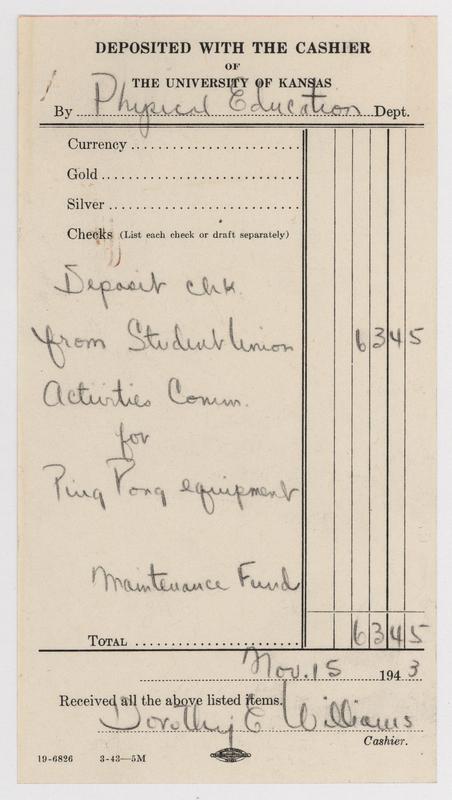 DEPOSITED WITH THE CASHIER
OF
THE UNIVERSITY OF KANSAS
By Physical Education Dept.
Currency
Gold
Silver
Checks (List each check or draft separately)
Deposit chk.
from Student Union 6345
Activities Comm.
for
Ping Pong equipment
Maintenance Fund
TOTAL 6345
Nov. 15 1943
Received all the above listed items.
Dorothy E Williams
Cashier.
19-6826 3-43—5M